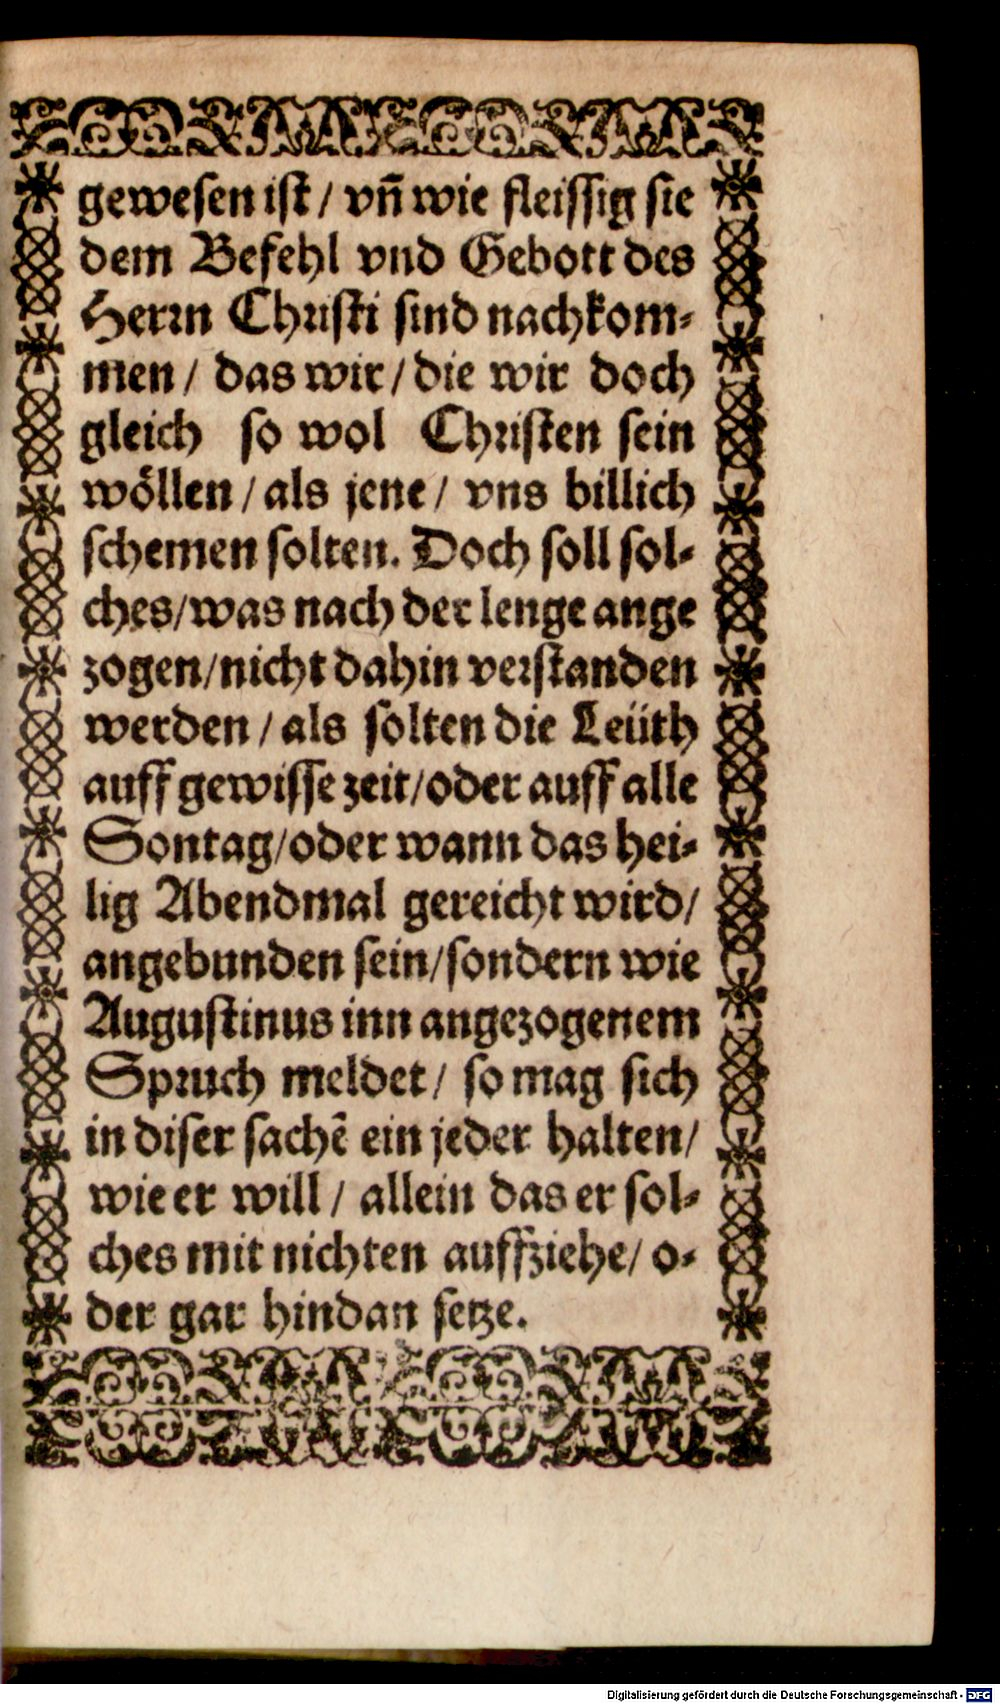 gewesen ist / vñ wie fleissig sie
dem Befehl vnd Gebott des
Herrn Christi sind nachkom-
men / das wir / die wir doch
gleich so wol Christen sein
wöllen / als jene / vns billich
schemen solten. Doch soll sol-
ches / was nach der lenge ange
zogen / nicht dahin verstanden
werden / als solten die Leüth
auff gewisse zeit / oder auff alle
Sontag / oder wann das hei-
lig Abendmal gereicht wird /
angebunden sein / sondern wie
Augustinus inn angezogenem
Spruch meldet / so mag sich
in diser sachē ein jeder halten /
wie er will / allein das er sol-
ches mit nichten auffziehe / o-
der gar hindan setze.
Digitalisierung gefördert durch die Deutsche Forschungsgemeinschaft - DFG